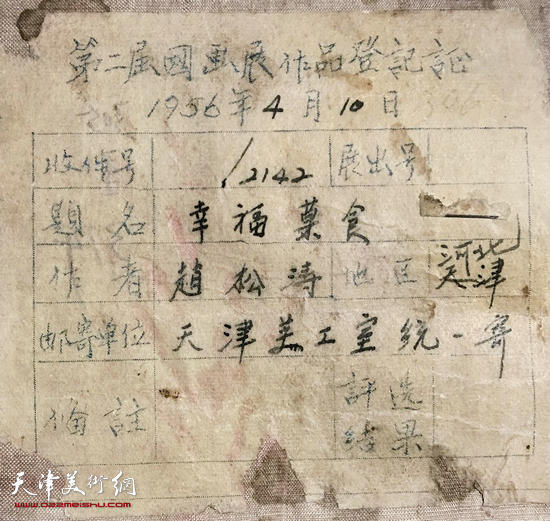 第二届國画展作品登記証
1956年4月10日
收件号 2142 展出号
題名 幸福菓食
作者 趙松涛 地区 河北天津
邮寄單位 天津美工室統一寄
俻註 評选結果
天津美術網
www.022meishu.com